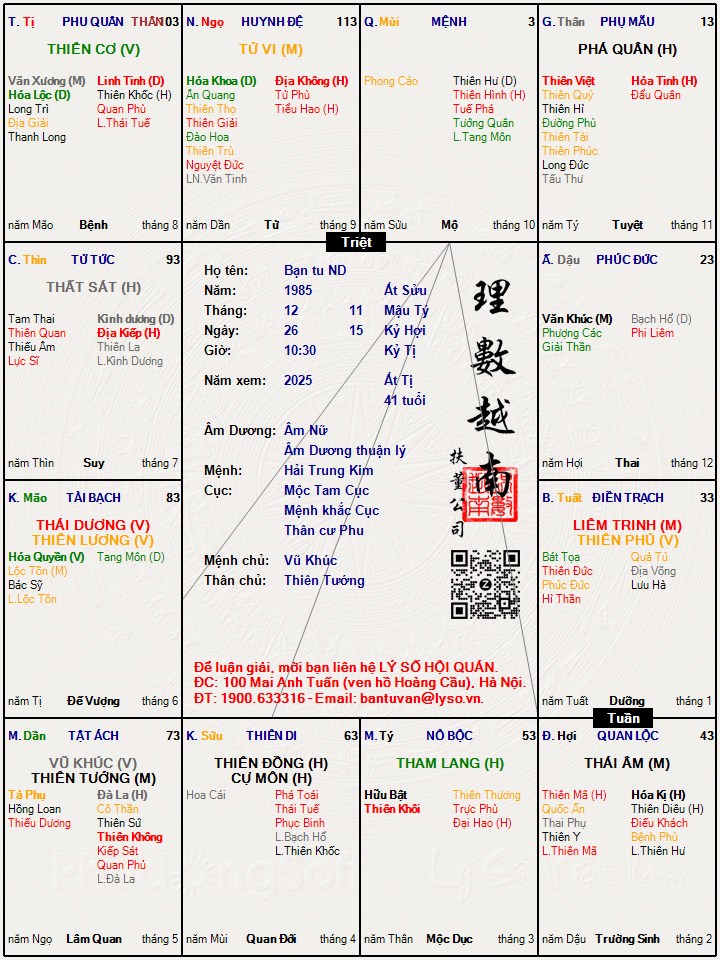 T. Tị PHU QUÂN THÂN 103
THIÊN CƠ (V)
Văn Xương (M) Linh Tinh (D)
Hóa Lộc (D) Thiên Khốc (H)
Long Trì Quan Phù
Địa Giải L.Thái Tuế
Thanh Long
năm Mão Bệnh tháng 8
N. Ngọ HUYNH ĐỆ 113
TỬ VI (M)
Hóa Khoa (D) Địa Không (H)
Ân Quang Tử Phù
Thiên Thọ Tiểu Hao (H)
Thiên Giải
Đào Hoa
Thiên Trù
Nguyệt Đức
LN.Văn Tinh
năm Dần Tử tháng 9
Q. Mùi MỆNH 3
Phong Cáo Thiên Hư (D)
Thiên Hình (H)
Tuế Phá
Tướng Quân
L.Tang Môn
năm Sửu Mộ tháng 10
G. Thân PHỤ MẪU 13
PHÁ QUÂN (H)
Thiên Việt Hỏa Tinh (H)
Thiên Quý Đẩu Quân
Thiên Hỉ
Đường Phù
Thiên Tài
Thiên Phúc
Long Đức
Tấu Thư
năm Tý Tuyệt tháng 11
Triệt
C. Thìn TỬ TỨC 93
THẤT SÁT (H)
Tam Thai Kình dương (D)
Thiên Quan Địa Kiếp (H)
Thiếu Âm Thiên La
Lực Sĩ L.Kình Dương
năm Thìn Suy tháng 7
Họ tên: Bạn tu ND
Năm: 1985 Ất Sửu
Tháng: 12 11 Mậu Tý
Ngày: 26 15 Kỷ Hợi
Giờ: 10:30 Kỷ Tị
Năm xem: 2025 Ất Tị
41 tuổi
Âm Dương: Âm Nữ
Âm Dương thuận lý
Mệnh: Hải Trung Kim
Cục: Mộc Tam Cục
Mệnh khắc Cục
Thân cư Phu
Mệnh chủ: Vũ Khúc
Thân chủ: Thiên Tướng
理數越南
扶董公司
Để luận giải, mời bạn liên hệ LÝ SỐ HỘI QUÁN.
ĐC: 100 Mai Anh Tuấn (ven hồ Hoàng Cầu), Hà Nội.
ĐT: 1900.633316 - Email: bantuvan@lyso.vn.
Ấ. Dậu PHÚC ĐỨC 23
Văn Khúc (M) Bạch Hổ (D)
Phượng Các Phi Liêm
Giải Thần
năm Hợi Thai tháng 12
K. Mão TÀI BẠCH 83
THÁI DƯƠNG (V)
THIÊN LƯƠNG (V)
Hóa Quyền (V) Tang Môn (D)
Lộc Tồn (M)
Bác Sỹ
L.Lộc Tồn
năm Tị Đế Vượng tháng 6
B. Tuất ĐIỀN TRẠCH 33
LIÊM TRINH (M)
THIÊN PHỦ (V)
Bát Tọa Quả Tú
Thiên Đức Địa Võng
Phúc Đức Lưu Hà
Hỉ Thần
năm Tuất Dưỡng tháng 1
Tuần
M. Dần TẬT ÁCH 73
VŨ KHÚC (V)
THIÊN TƯỚNG (M)
Tả Phụ Đà La (H)
Hồng Loan Cô Thần
Thiếu Dương Thiên Sứ
Thiên Không
Kiếp Sát
Quan Phủ
L.Đà La
năm Ngọ Lâm Quan tháng 5
K. Sửu THIÊN DI 63
THIÊN ĐỒNG (H)
CỰ MÔN (H)
Hoa Cái Phá Toái
Thái Tuế
Phục Binh
L.Bạch Hổ
L.Thiên Khốc
năm Mùi Quan Đới tháng 4
M. Tý NÔ BỘC 53
THAM LANG (H)
Hữu Bật Thiên Thương
Thiên Khôi Trực Phù
Đại Hao (H)
năm Thân Mộc Dục tháng 3
Đ. Hợi QUAN LỘC 43
THÁI ÂM (M)
Thiên Mã (H) Hóa Kị (H)
Quốc Ấn Thiên Diêu (H)
Thai Phụ Điếu Khách
Thiên Y Bệnh Phù
L.Thiên Mã L.Thiên Hư
năm Dậu Trường Sinh tháng 2